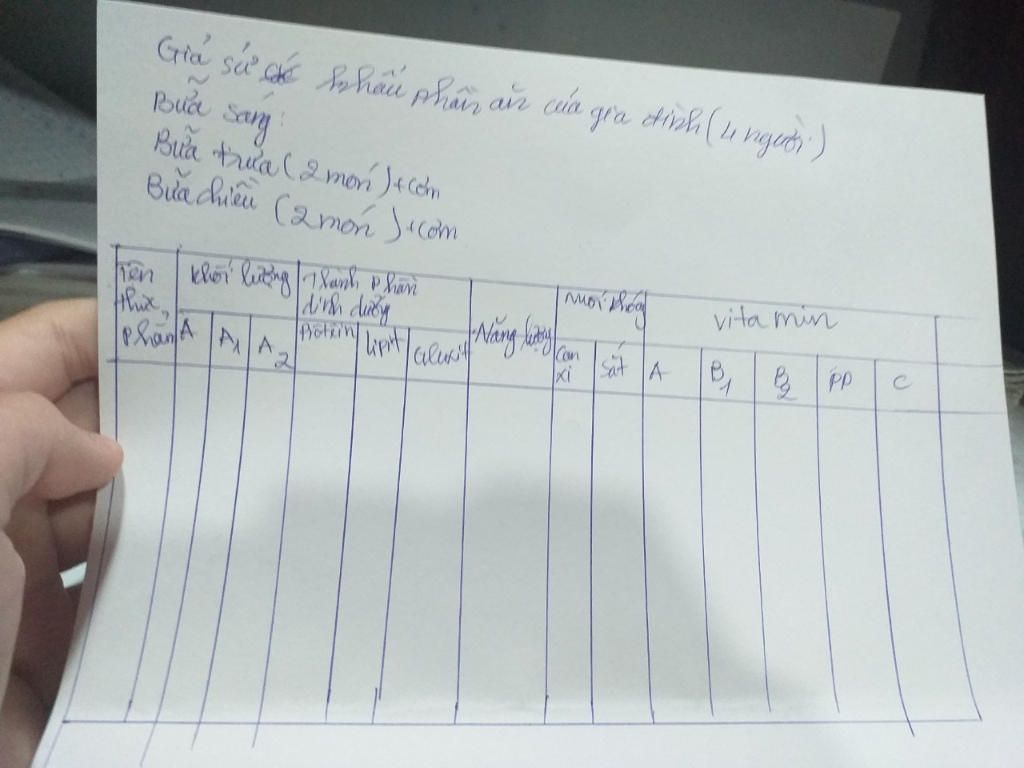 Giả sử khẩu phần ăn của gia đình (4 người)
Bữa sáng:
Bữa trưa (2 món) + cơm
Bữa chiều (2 món) + cơm
Tên thực phẩm
Khối lượng
Thành phần dinh dưỡng
Năng lượng
Muối khoáng
Vitamin
A
A1
A2
Protein
Lipit
Gluxit
Canxi
Sắt
A
B1
B2
PP
C